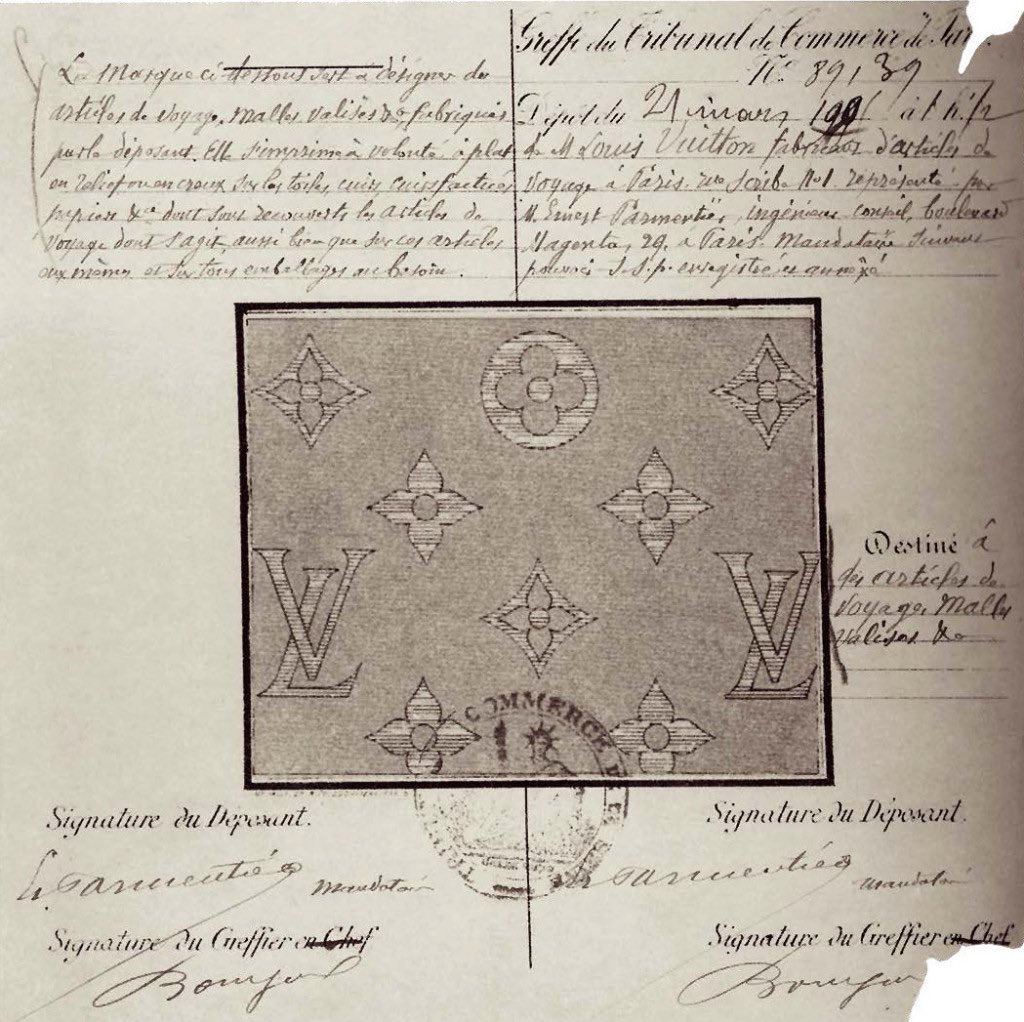 La Marque ci-dessous sert à désigner des
articles de voyage, malles valises &a fabriqués
par le déposant. Elle s'imprime à volonté à plat
en relief ou en creux sur les toiles cuirs cuirs factices
papiers &a dont sont recouverts les articles de
voyage dont s'agit aussi bien que sur ces articles
eux mêmes et sur tous emballages au besoin.
Greffe du Tribunal de Commerce de Par
No 89,139
Dépôt du 21 mars à 1 h.
de M Louis Vuitton fabricant d'articles de
voyage à Paris. rue Scribe No 1. représenté par
M. Ernest Parmentier, ingénieur conseil, boulevard
Magenta, 29, à Paris. Mandataire suivant
pouvoir s.s.p. enregistré et annexé
LV
LV
Destiné à
des articles de
voyages Malles
valises &a
COMMERCE DE
Signature du Déposant.
Signature du Déposant.
E. Parmentier mandataire
E. Parmentier mandataire
Signature du Greffier en Chef
Signature du Greffier en Chef